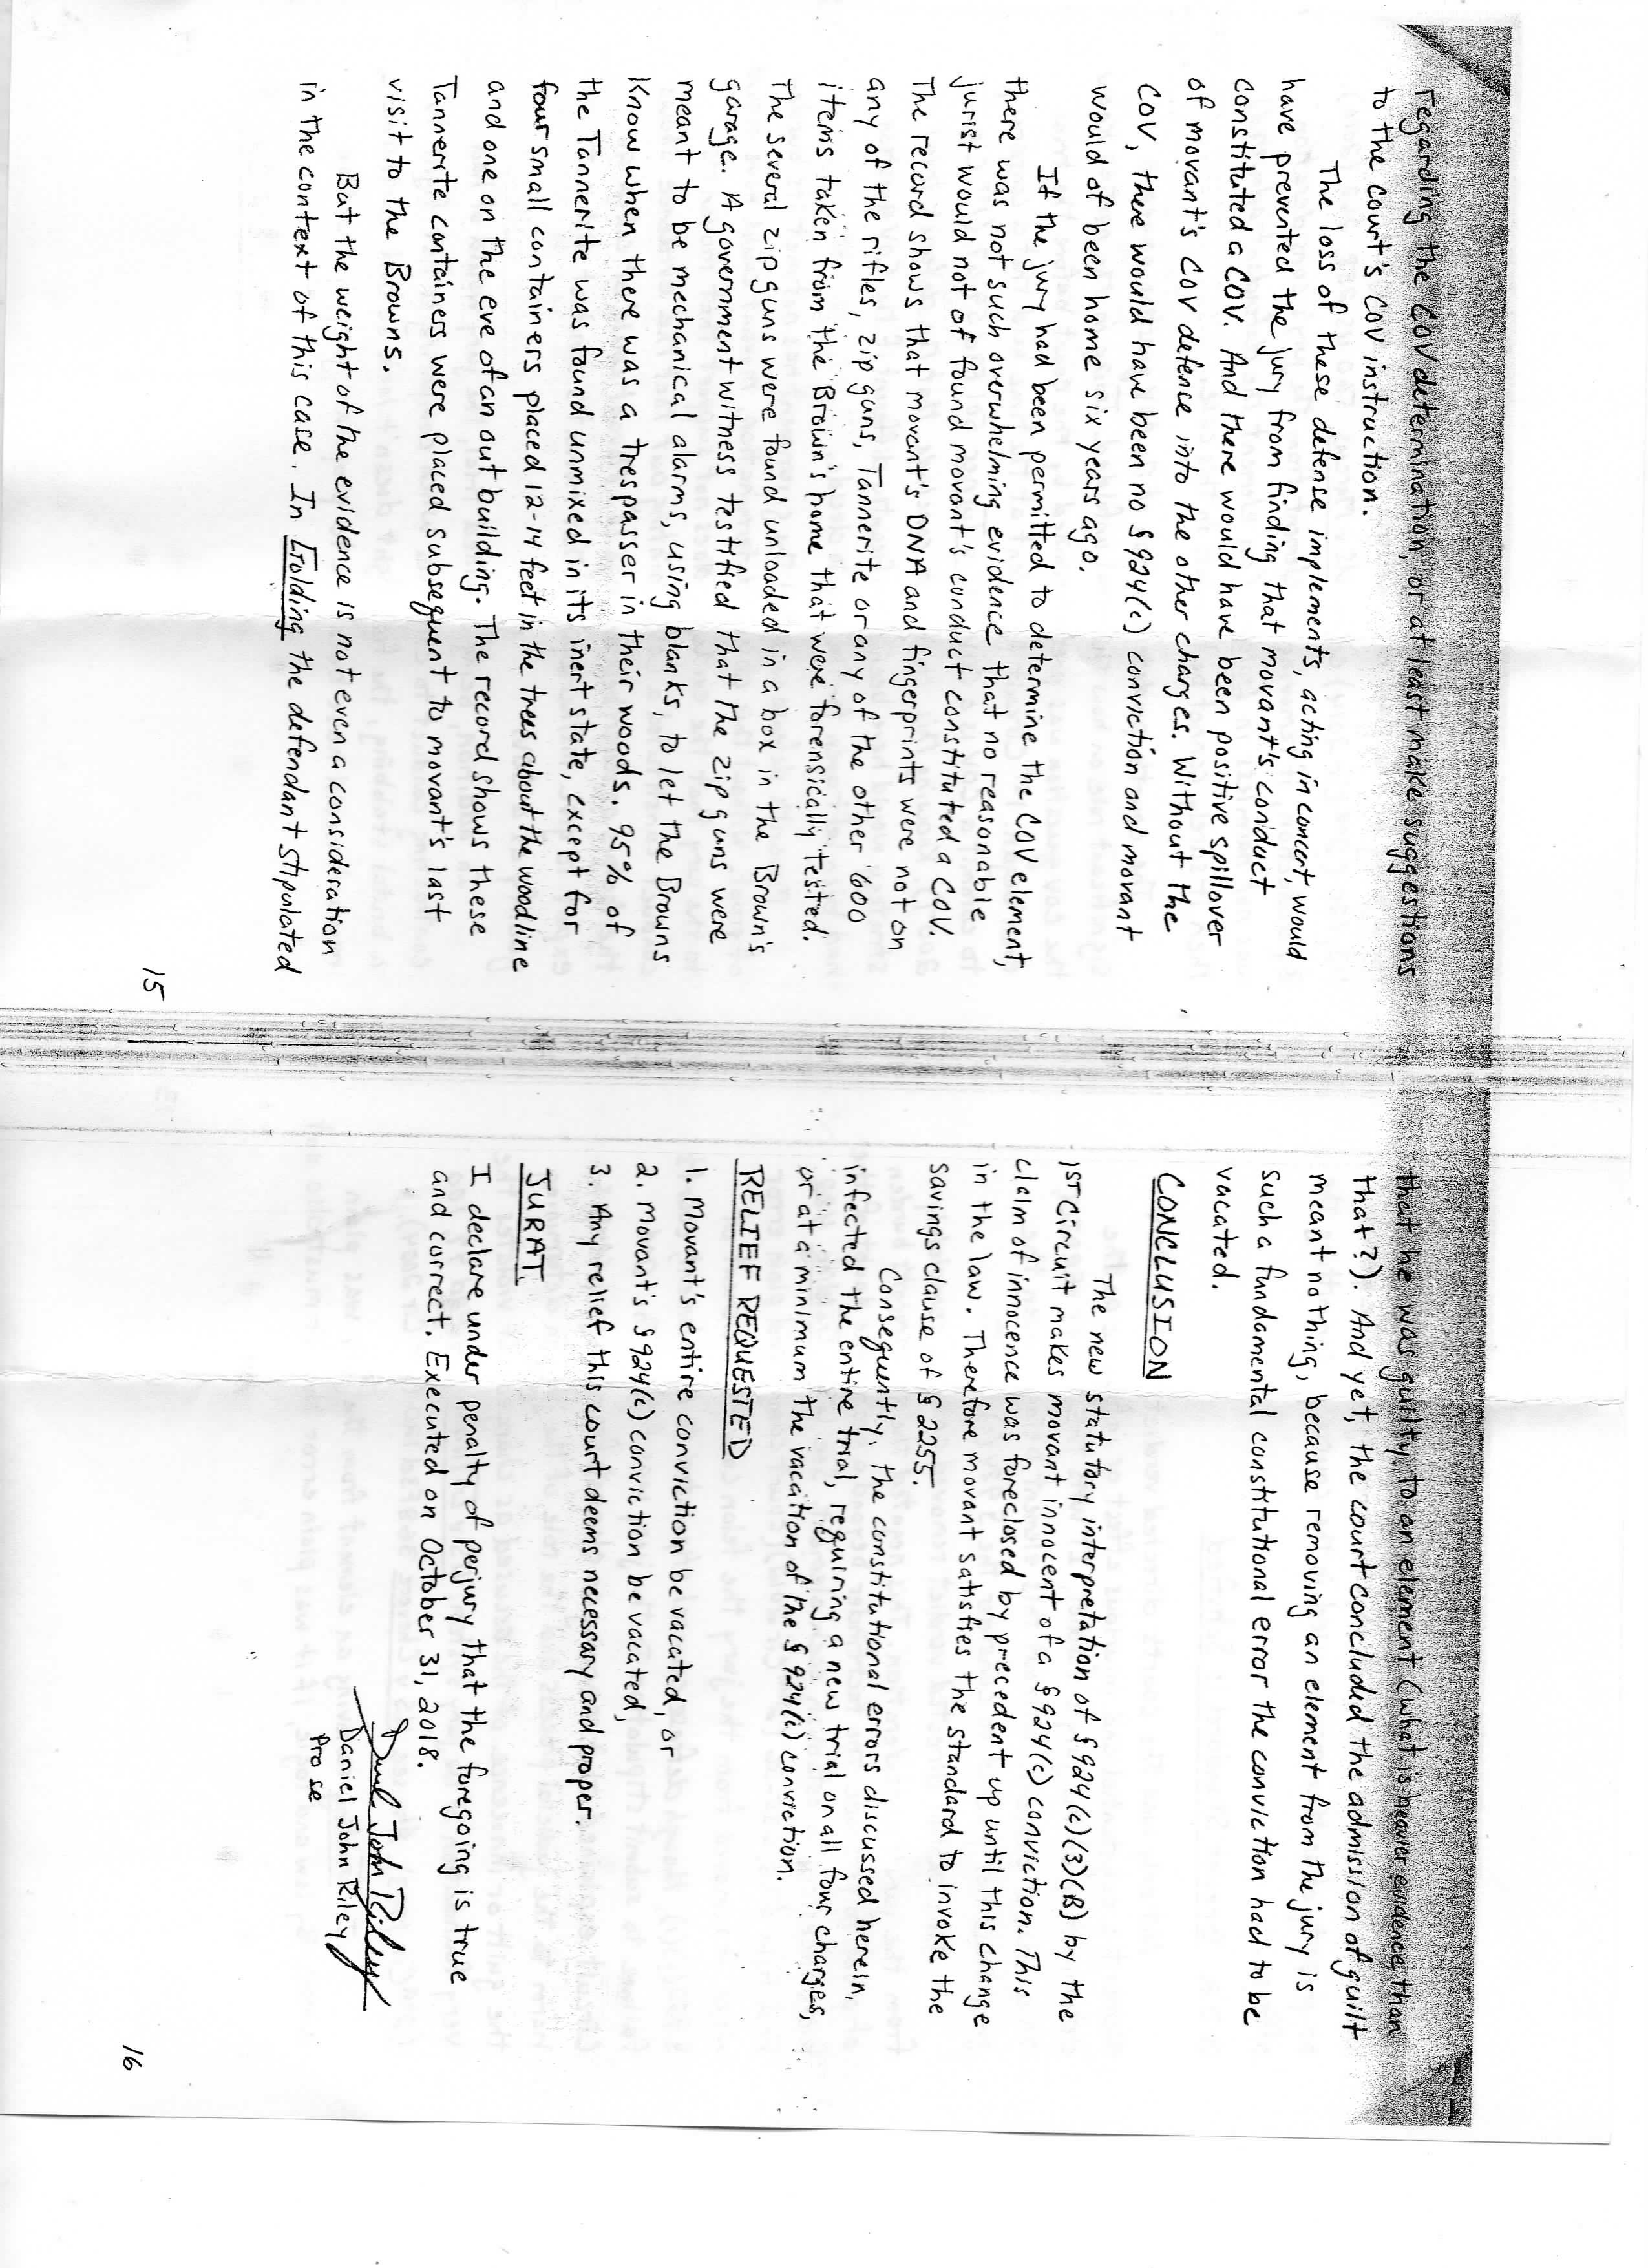 regarding the COV determination, or at least make suggestions
to the court's COV instruction.
The loss of these defense implements, acting in concert, would
have prevented the jury from finding that movant's conduct
constituted a COV. And there would have been positive spillover
of movant's COV defense into the other charges. Without the
COV, there would have been no § 924(c) conviction and movant
would of been home six years ago.
If the jury had been permitted to determine the COV element,
there was not such overwhelming evidence that no reasonable
jurist would not of found movant's conduct constituted a COV.
The record shows that movant's DNA and fingerprints were not on
any of the rifles, zip guns, Tannerite or any of the other 600
items taken from the Brown's home that were forensically tested.
The several zip guns were found unloaded in a box in the Brown's
garage. A government witness testified that the zip guns were
meant to be mechanical alarms, using blanks, to let the Browns
know when there was a trespasser in their woods. 95% of
the Tannerite was found unmixed in its inert state, except for
four small containers placed 12-14 feet in the trees about the woodline
and one on the eve of an out building. The record shows these
Tannerite containess were placed subsequent to movant's last
visit to the Browns.
But the weight of the evidence is not even a consideration
in the context of this case. In Golding the defendant stipulated
15
that he was guilty to an element (what is heavier evidence than
that?). And yet, the court concluded the admission of guilt
meant nothing, because removing an element from the jury is
such a fundamental constitutional error the conviction had to be
vacated.
CONCLUSION
The new statutory interpretation of § 924(c)(3)(B) by the
1ST Circuit makes movant innocent of a § 924(c) conviction. This
claim of innocence was foreclosed by precedent up until this change
in the law. Therefore movant satisfies the standard to invoke the
savings clause of § 2255.
Consequently, the constitutional errors discussed herein,
infected the entire trial, requiring a new trial on all four charges,
or at a minimum the vacation of the § 924(c) conviction.
RELIEF REQUESTED
1. Movant's entire conviction be vacated, or
2. Movant's § 924(c) conviction be vacated,
3. Any relief this court deems necessary and proper.
JURAT
I declare under penalty of perjury that the foregoing is true
and correct. Executed on October 31, 2018.
Daniel John Riley
Daniel John Riley
Pro se
16